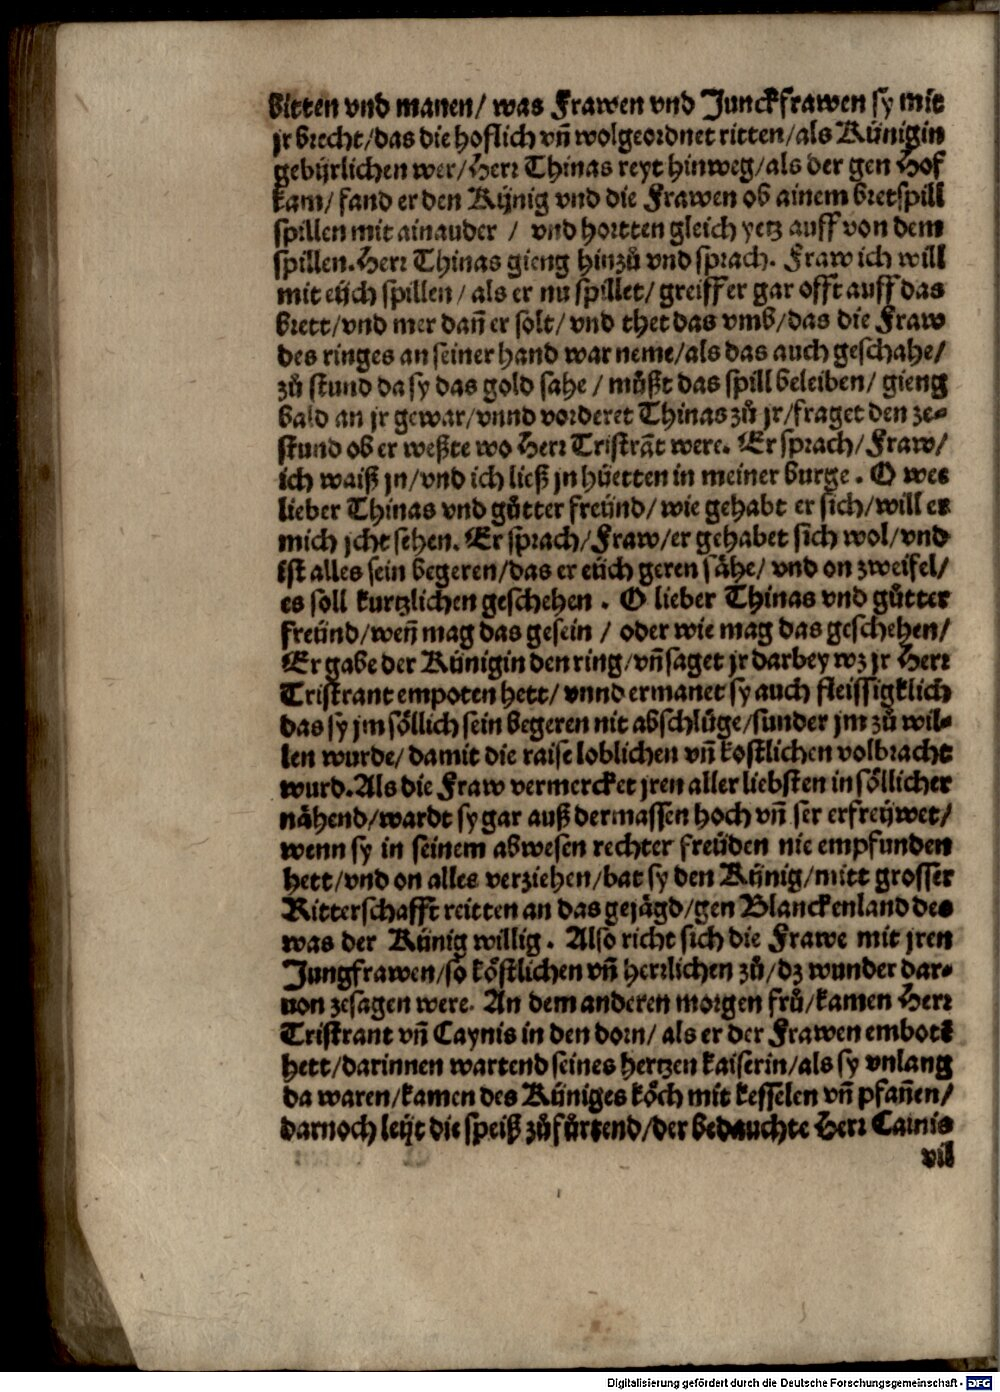 bitten vnd manen/ was Frawen vnd Junckfrawen sy mit
jr brecht/das die hoflich vñ wolgeordnet ritten/als Künigin
gebijrlichen wer/Herr Thinas reyt hinweg/als der gen Hof
kam/ fand er den Kijnig vnd die Frawen ob ainem bretspill
spillen mit ainauder / vnd hortten gleich yetz auff von dem
spillen. Herr Thinas gieng hinzů vnd sprach. Fraw ich will
mit eijch spillen/ als er nu spillet/ greiff er gar offt auff das
brett/vnd mer dañ er solt/ vnd thet das vmb/das die Fraw
des ringes an seiner hand war neme/als das auch geschahe/
zů stund da sy das gold sahe / můßt das spill beleiben/ gieng
bald an jr gewar/vnnd vorderet Thinas zů jr/fraget den ze-
stund ob er weßte wo Herr Tristrãt were. Er sprach/Fraw/
ich waiß jn/vnd ich ließ jn hüetten in meiner burge. O wee
lieber Thinas vnd gůtter freünd/ wie gehabt er sich/will er
mich jcht sehen. Er sprach/Fraw/er gehabet sich wol/vnd
ist alles sein begeren/das er eüch geren sähe/ vnd on zweifel/
es soll kurtzlichen geschehen. O lieber Thinas vnd gůtter
freünd/weñ mag das gesein / oder wie mag das geschehen/
Er gabe der Künigin den ring/vñ saget jr darbey wz jr Herr
Tristrant empoten hett/ vnnd ermanet sy auch fleissigklich
das sy jm söllich sein begeren nit abschlüge/sunder jm zů wil-
len wurde/ damit die raise loblichen vñ kostlichen volbracht
wurd. Als die Fraw vermercket jren aller liebsten in söllicher
nähend/wardt sy gar auß dermassen hoch vñ ser erfreijwet/
wenn sy in seinem abwesen rechter freüden nie empfunden
hett/vnd on alles verziehen/bat sy den Künig/mitt grosser
Ritterschafft reitten an das gejägd/gen Blanckenland des
was der Künig willig. Also richt sich die Frawe mit jren
Jungfrawen/so köstlichen vñ herrlichen zů/dz wunder dar-
uon zesagen were. An dem anderen morgen frů/kamen Herr
Tristrant vñ Caynis in den dorn/ als er der Frawen embott
hett/darinnen wartend seines hertzen kaiserin/als sy vnlang
da waren/kamen des Kijniges köch mit kesselen vñ pfañen/
darnoch leijt die speiß zůfürtend/der bedauchte Herr Cainis
vil
Digitalisierung gefördert durch die Deutsche Forschungsgemeinschaft - DFG